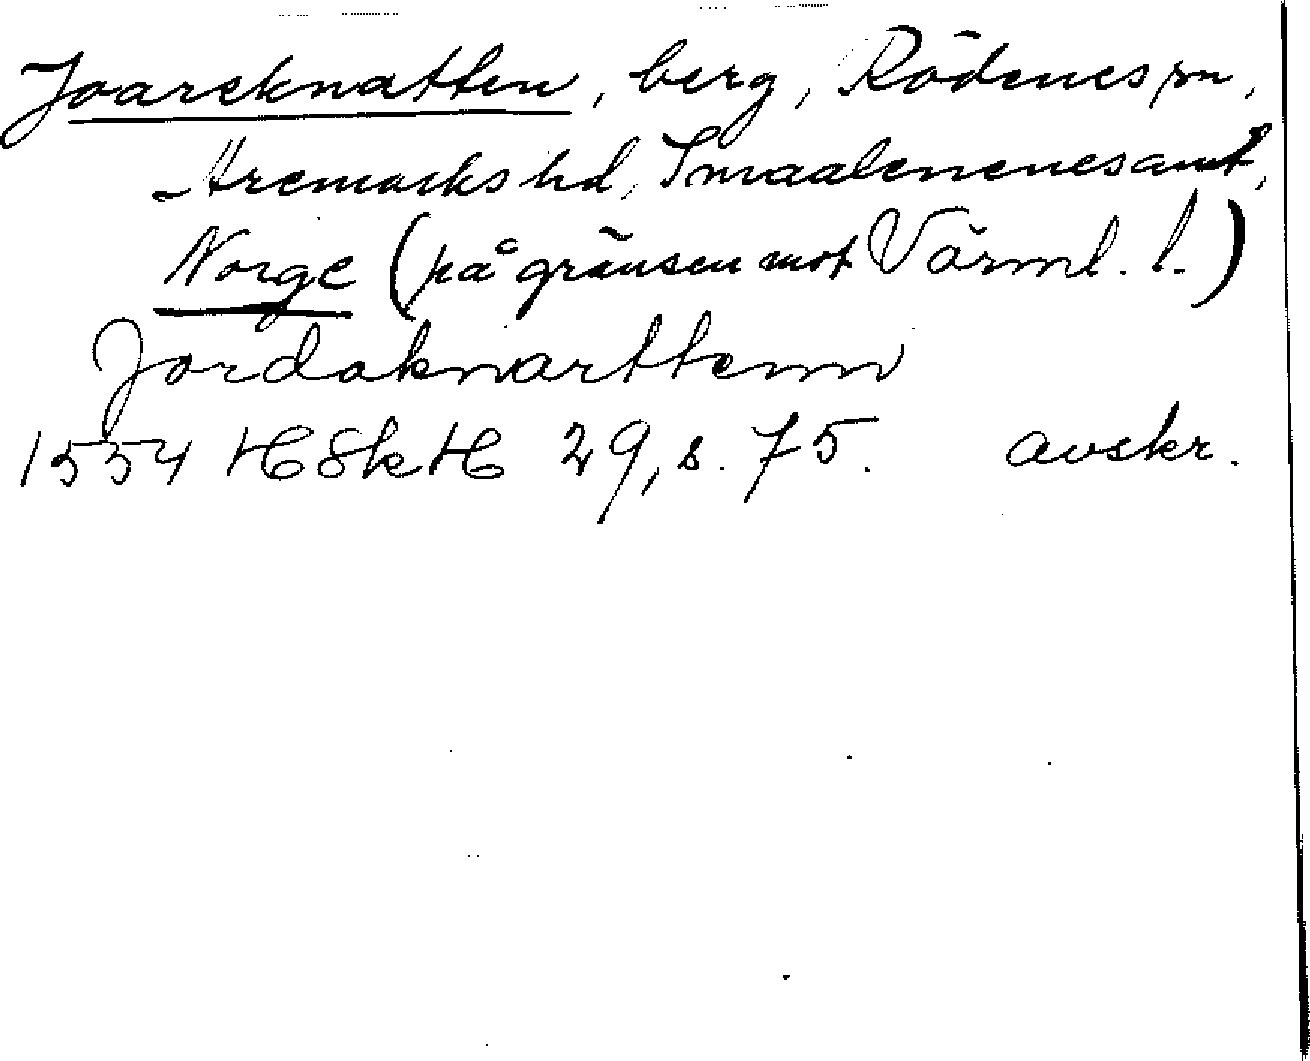 Joareknatten, berg, Rödenes sn,
Aremarks hd, Smaalenenes amt,
Norge (på gränsen mot Värml. l.)
Jordaknarttenn
1554 HSkH 29, s. 75. avskr.